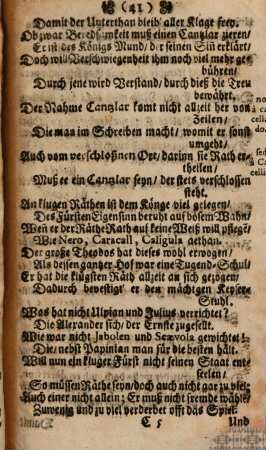 (41)
Damit der Unterthan bleib' aller Klage frey.
Ob zwar Beredsamkeit muß einen Cantzlar zieren/
Er ist des Königs Mund/ der seinen Siñ erklärt/
Doch will Verschwiegenheit ihm noch viel mehr ge-
bühren/
Durch jene wird Verstand/ durch dieß die Treu
bewährt.
Der Nahme Cantzlar komt nicht allzeit her von
Zeilen/
Die man im Schreiben macht/ womit er sonst
umgeht/
Auch vom verschloßnen Ort/ darinn sie Rath er-
theilen/
Muß er ein Cantzlar seyn/ der stets verschlossen
steht.
An klugen Räthen ist dem Könge viel gelegen/
Des Fürsten Eigensinn beruht auf bösem Wahn/
Weñ er der Räthe Rath auf keine Weiß will pflegē/
Wie Nero, Caracall, Caligula gethan.
Der große Theodos hat dieses wohl erwogen/
Als dessen gantzer Hof war eine Tugend-Schul/
Er hat die klügsten Räth allzeit an sich gezogen/
Dadurch bevestigt' er den mächtgen Keyser-
Stuhl.
Was hat nicht Ulpian und Julius verrichtet?
Die Alexander sich/ der Ernste zugesellt.
Wie war nicht Jabolen und Scævola gewichtet!
Die/ nebst Papinian man für die besten hält.
Will nun ein kluger Fürst nicht seinen Staat ent-
seelen/
So müssen Räthe seyn/ doch auch nicht gar zu viel/
Auch einer nicht allein; Er muß nicht fremde wählē/
Zuwenig und zu viel verderbet offt das Spiel.
C 5
Und